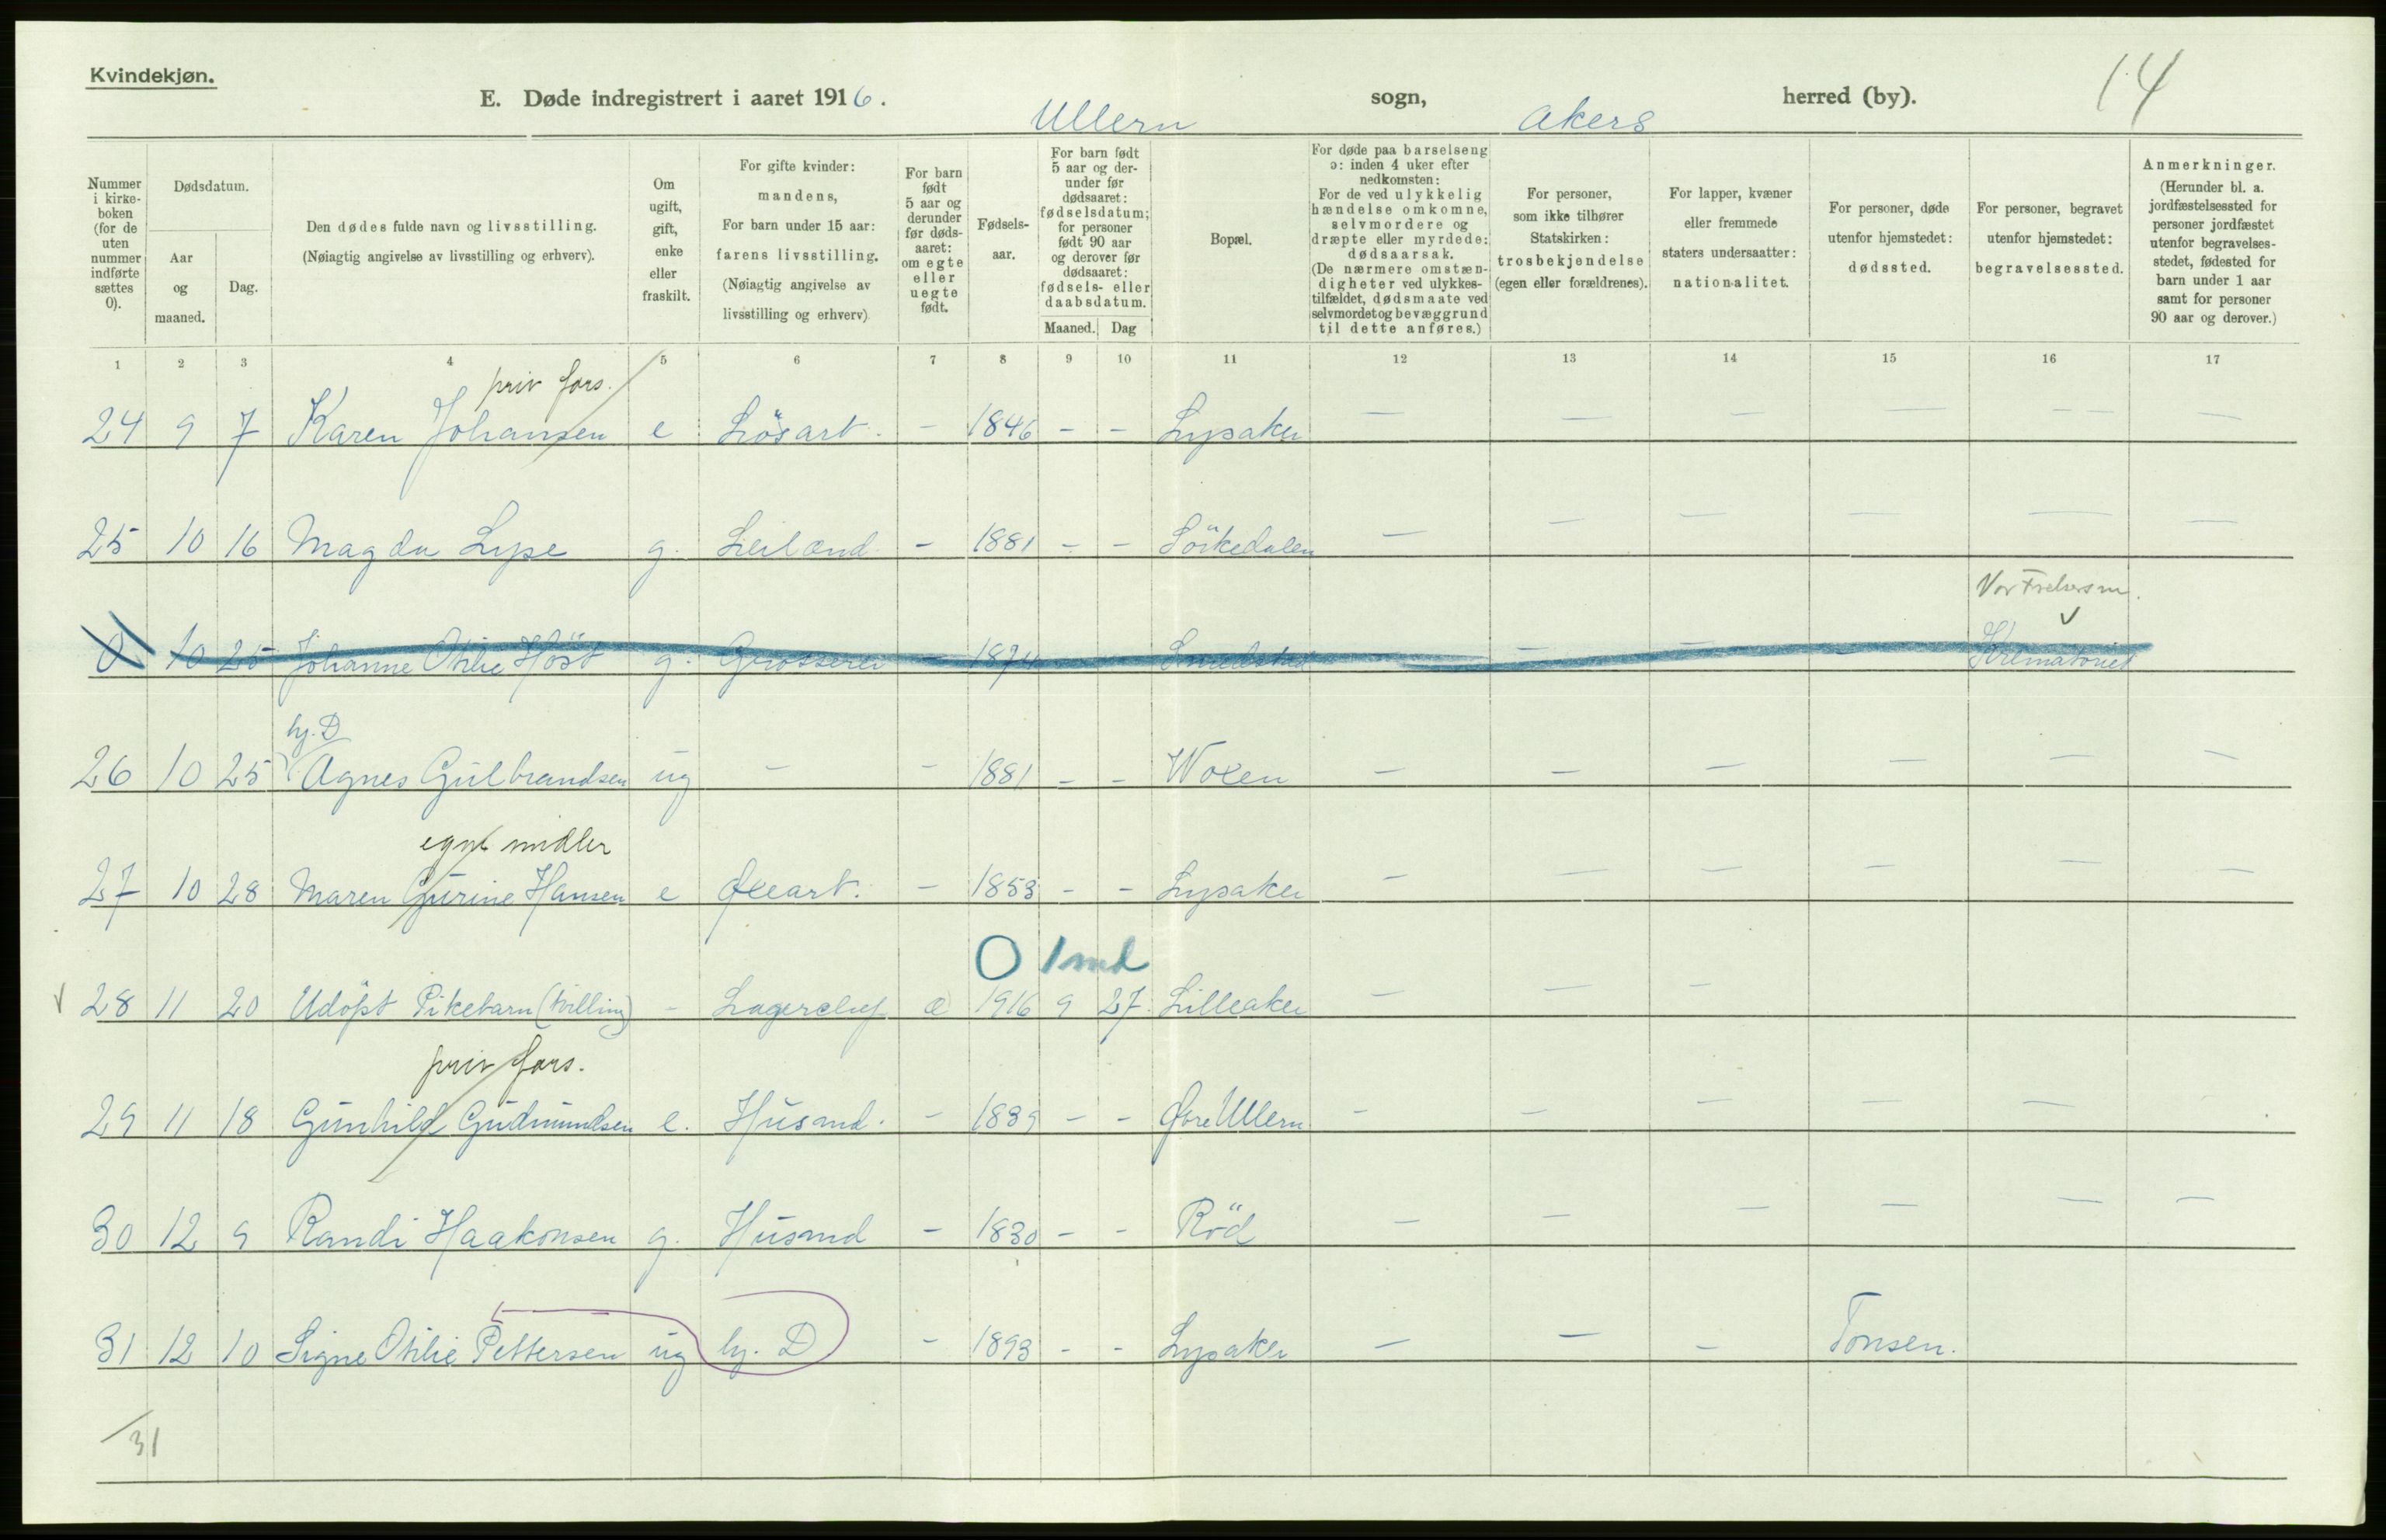 Kvindekjøn.
E. Døde indregistrert i aaret 1916.
Ullern sogn, Akers herred (by).
14
Nummer i kirkeboken (for de uten nummer indførte sættes 0).
Dødsdatum.
Aar og maaned.
Dag.
Den dødes fulde navn og livsstilling.
(Nøiagtig angivelse av livsstilling og erhverv).
Om ugift, gift, enke eller fraskilt.
For gifte kvinder: mandens,
For barn under 15 aar: farens livsstilling.
(Nøiagtig angivelse av livsstilling og erhverv)
For barn født 5 aar og derunder før dødsaaret: om egte eller uegte født.
Fødselsaar.
For barn født 5 aar og derunder før dødsaaret: fødselsdatum; for personer født 90 aar og derover før dødsaaret: fødsels- eller daabsdatum.
Maaned. Dag
Bopæl.
For døde paa barselseng ɔ: inden 4 uker efter nedkomsten:
For de ved ulykkelig hændelse omkomne, selvmordere og dræpte eller myrdede: dødsaarsak.
(De nærmere omstændigheter ved ulykkestilfældet, dødsmaate ved selvmordet og bevæggrund til dette anføres.)
For personer, som ikke tilhører Statskirken: trosbekjendelse (egen eller forældrenes).
For lapper, kvæner eller fremmede staters undersaatter: nationalitet.
For personer, døde utenfor hjemstedet: dødssted.
For personer, begravet utenfor hjemstedet: begravelsessted.
Anmerkninger.
(Herunder bl. a. jordfæstelsessted for personer jordfæstet utenfor begravelsesstedet, fødested for barn under 1 aar samt for personer 90 aar og derover.)
1 2 3 4 5 6 7 8 9 10 11 12 13 14 15 16 17
priv fors.
24 9 7 Karen Johansen e Lösarb. - 1846 - - Lysaker — — — — — —
25 10 16 Magda Lyse g. Leilænd. - 1881 - - Sörkedalen — — — — — —
Vor Frelsers m.
0 10 25 Johanne Otilie Höst g. Grosserer - 1874 Smedstad — — — Krematoriet
hj. D
26 10 25 Agnes Gulbrandsen ug - - 1881 - - Woxen — — — — — —
egne midler
27 10 28 Maren Gurine Hansen e - 1853 - - Lysaker — — — — — —
0 1 md
28 11 20 Udöpt Pikebarn (tvilling) - æ 1916 9 27. Lilleaker — — —
priv fors.
29 11 18 Gunhild Gudmundsen e. Husmd. - 1839 - - Øvre Ullern — — — — —
30 12 9 Randi Haakonsen g. Husmd - 1830 - - Röd — — — — — —
31 12 10 Signe Otilie Pettersen ug hj. D - 1893 - - Lysaker — — — Tonsen.
31